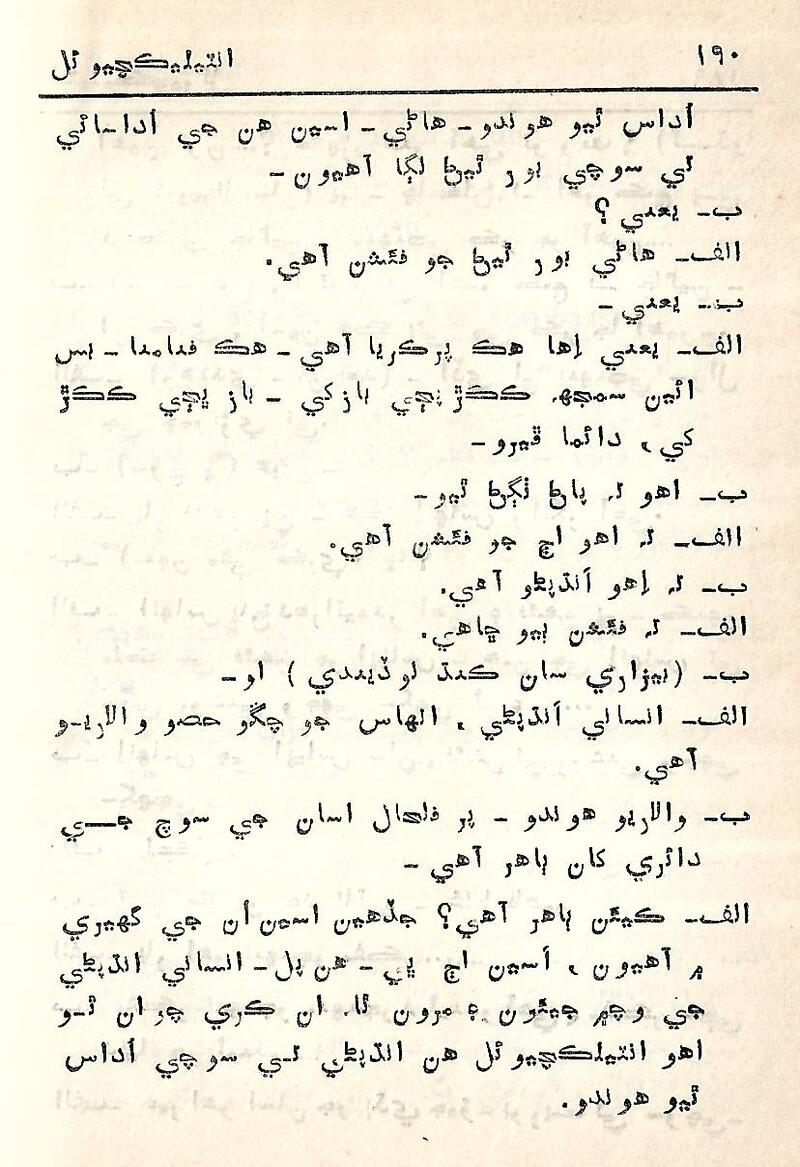 ١٩٠
انٽيليڪچيوئل
اُداس ٿيو هوندو- هاڻي- اسين هن جي اُداسائي
تي سوچي بور ٿيڻ لڳا آهيون-
ب- يعني؟
الف- هاڻي بور ٿيڻ جو فئشن آهي.
ب- يعني-
الف- يعني اِها هڪ پرڪريا آهي- هڪ فدامدا- بس
ائين سمجهہ ڪڪڙ ڀڄي بازکي - باز ڀڄي ڪڪڙ
کي، دائما ڦيرو-
ب- اهو تہ پاڻ ٺڳڻ ٿيو-
الف- نہ اهو اڄ جو فئشن آهي.
ب- نہ اِهو اَنڌپڻو آهي.
الف- تہ فئشن ٻيو ڇاهي.
ب- (بيزاري سان ڪنڌ لوڏيندي) او-
الف- انساني اَنڌپڻي، اتهاس جو چڱو حصو والاريو
آهي.
ب- والاريو هوندو - پر فلحال اسان جي سوچ جي
دائري کان ٻاهر آهي-
الف- ڪيئن ٻاهر آهي؟ جڏهين اسين اُن جي گهيري
۾ آهيون، اَسين اڄ ڀي- هن پل- انساني انڌپڻي
جي وچ۾ جيئون ۽ مرون ٿا. ان ڪري چوان ٿو
اهو انٽيلڪچيوئل هن انڌپڻي تي سوچي اُداس
ٿيو هوندو.